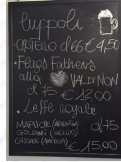 luppoli
• CASTELLO cl 66 € 4,50
• Flag's Father's
alla VALDINON
cl 75 € 12.00
• Leffe royale
MAPUCHE (ARGENTINA) cl 75
GOLDING (BELGIO)
CASCADE (AMERICA) € 15.00